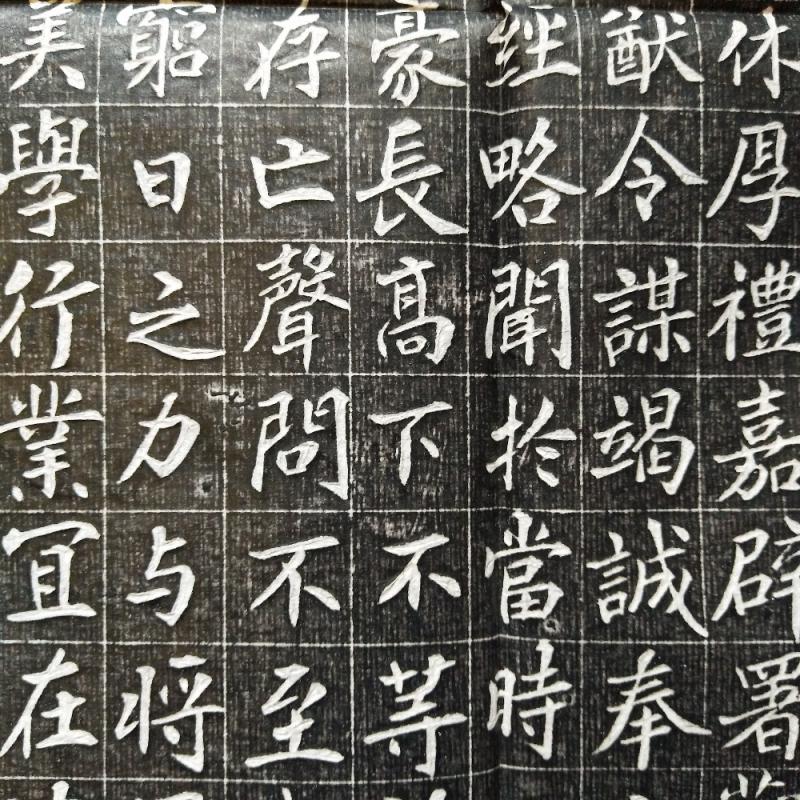 休厚禮嘉辟署
猷令謀竭誠奉
經略聞於當時
豪長高下不等
存亡聲問不至
窮日之力与將
美學行業宜在